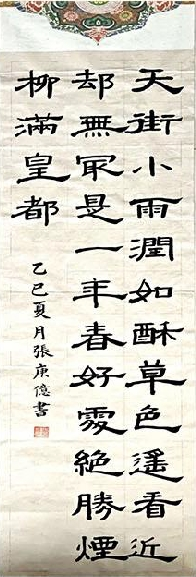 天街小雨潤如酥草色遙看近
却無冣是一年春好處絕勝煙
柳滿皇都
乙巳夏月張庚億書